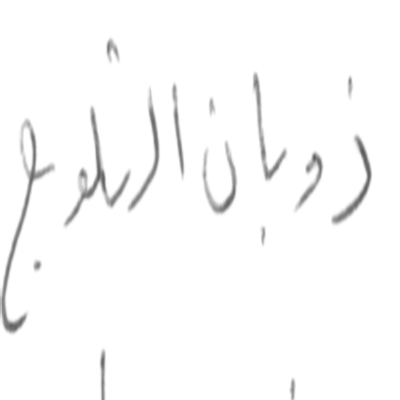 ذوبان الثلوج